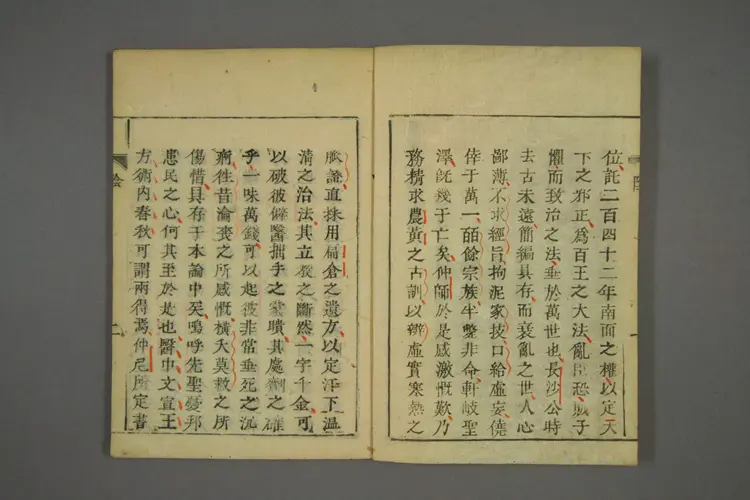 位託二百四十二年南面之權以定天
下之邪正爲百王之大法亂臣恐賊子
懼而致治之法垂於萬世也長沙公時
去古未遠簡編具存而衰亂之世人心
鄙薄不求經旨拘泥家技口給虛妄僥
倖于萬一皕餘宗族半斃非命軒岐聖
澤旣幾于亡矣仲師於是感激慨歎乃
務精求農黃之古訓以辯虛實寒熱之
脉證直採用扁倉之遺方以定汗下温
淸之治法其立敎之斷然一字千金可
以破彼僻醫拙手之蒙聵其處劑之確
乎一味萬錢可以起彼非常垂死之沉
痾徃昔淪喪之所感慨橫夭莫救之所
傷惜具存于本論中矣嗚呼先聖憂邦
患民之心何其至於是也醫中文宣王
方術內春秋可謂兩得焉仲尼所定書